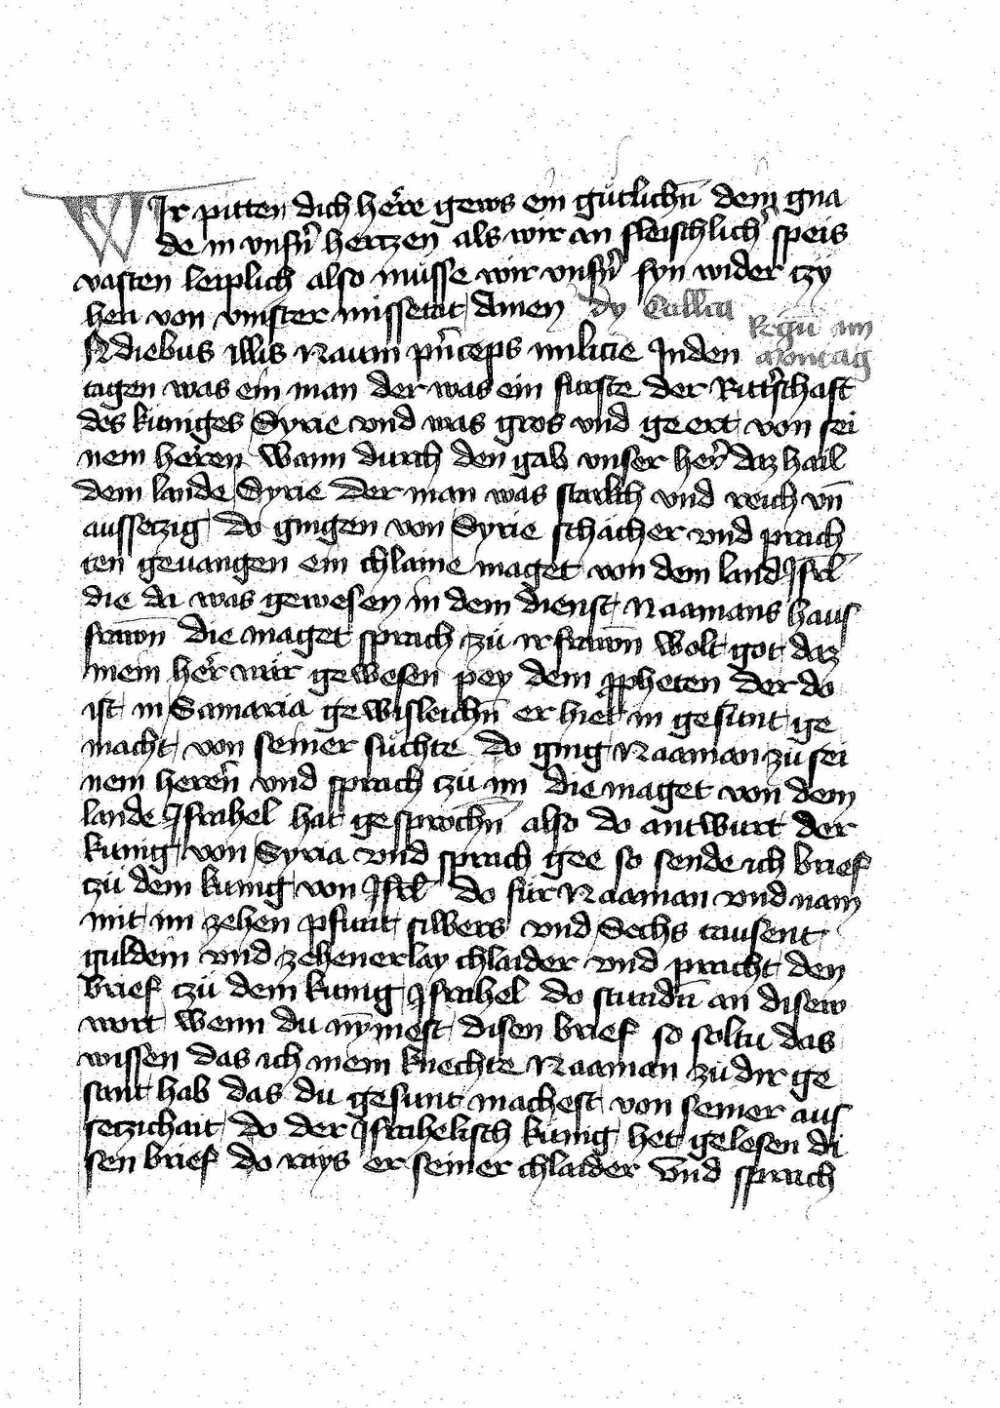 WIr pitten dich here gews ein gutlichn̄ dein gna
de in vnsn̄ hertzen als wir an fleischlich speis
vasten leiplich also müsse wir vnsn̄ syn wider czy
hen von vnnster missetat Amen dy Collica
Regū am
N diebus illis Naam pn̄ceps milicie Inden Montag
tagen was ein man der was ein furste der Ritt̓schaft
des kuniges Syrie vnd was gros vnd geert von sei
nem heren Wann durch den gab vnser her̓ daz hail
dem lande Syrie der man was starkch vnd reich vn̄
aussetzig do gingen von Syrie schacher vnd prach
ten geuangen ein chlaine maget von dem land Isrl̄
die da was gewesen in dem dienst Naamans haus
frawn̄ die maget sprach zü ir frawn̄ wolt got daz
mein her wär gewesen pey dem ꝓpheten der do
ist in Samaria gewisleichn̄ er hiet in gesunt ge
macht von seiner suchte do ging Naaman zü sei
nem heren̄ vnd sprach tzü im die maget von dem
lande Israhel hat gesprochn̄ also do antwurt der
kunig von Syria vnd sprach gee so sende ich brief
tzü dem kunig von Isrl̄ do für Naaman vnd nam
mit im zehen pfunt silbers vnd Sechs tausent
guldein vnd zehenerlay chlaider vnd pracht den
brief tzü dem kunig Israhel do stundn̄ an disew
wort wenn du nÿmest disen brief so soltu das
wissen das ich mein knechte Naaman zü dir ge
sant hab das du gesunt machest von seiner aus
setzichait do der Israhelisch kunig het gelesen di
sen brief do rays er seiner chlaider vnd sprach